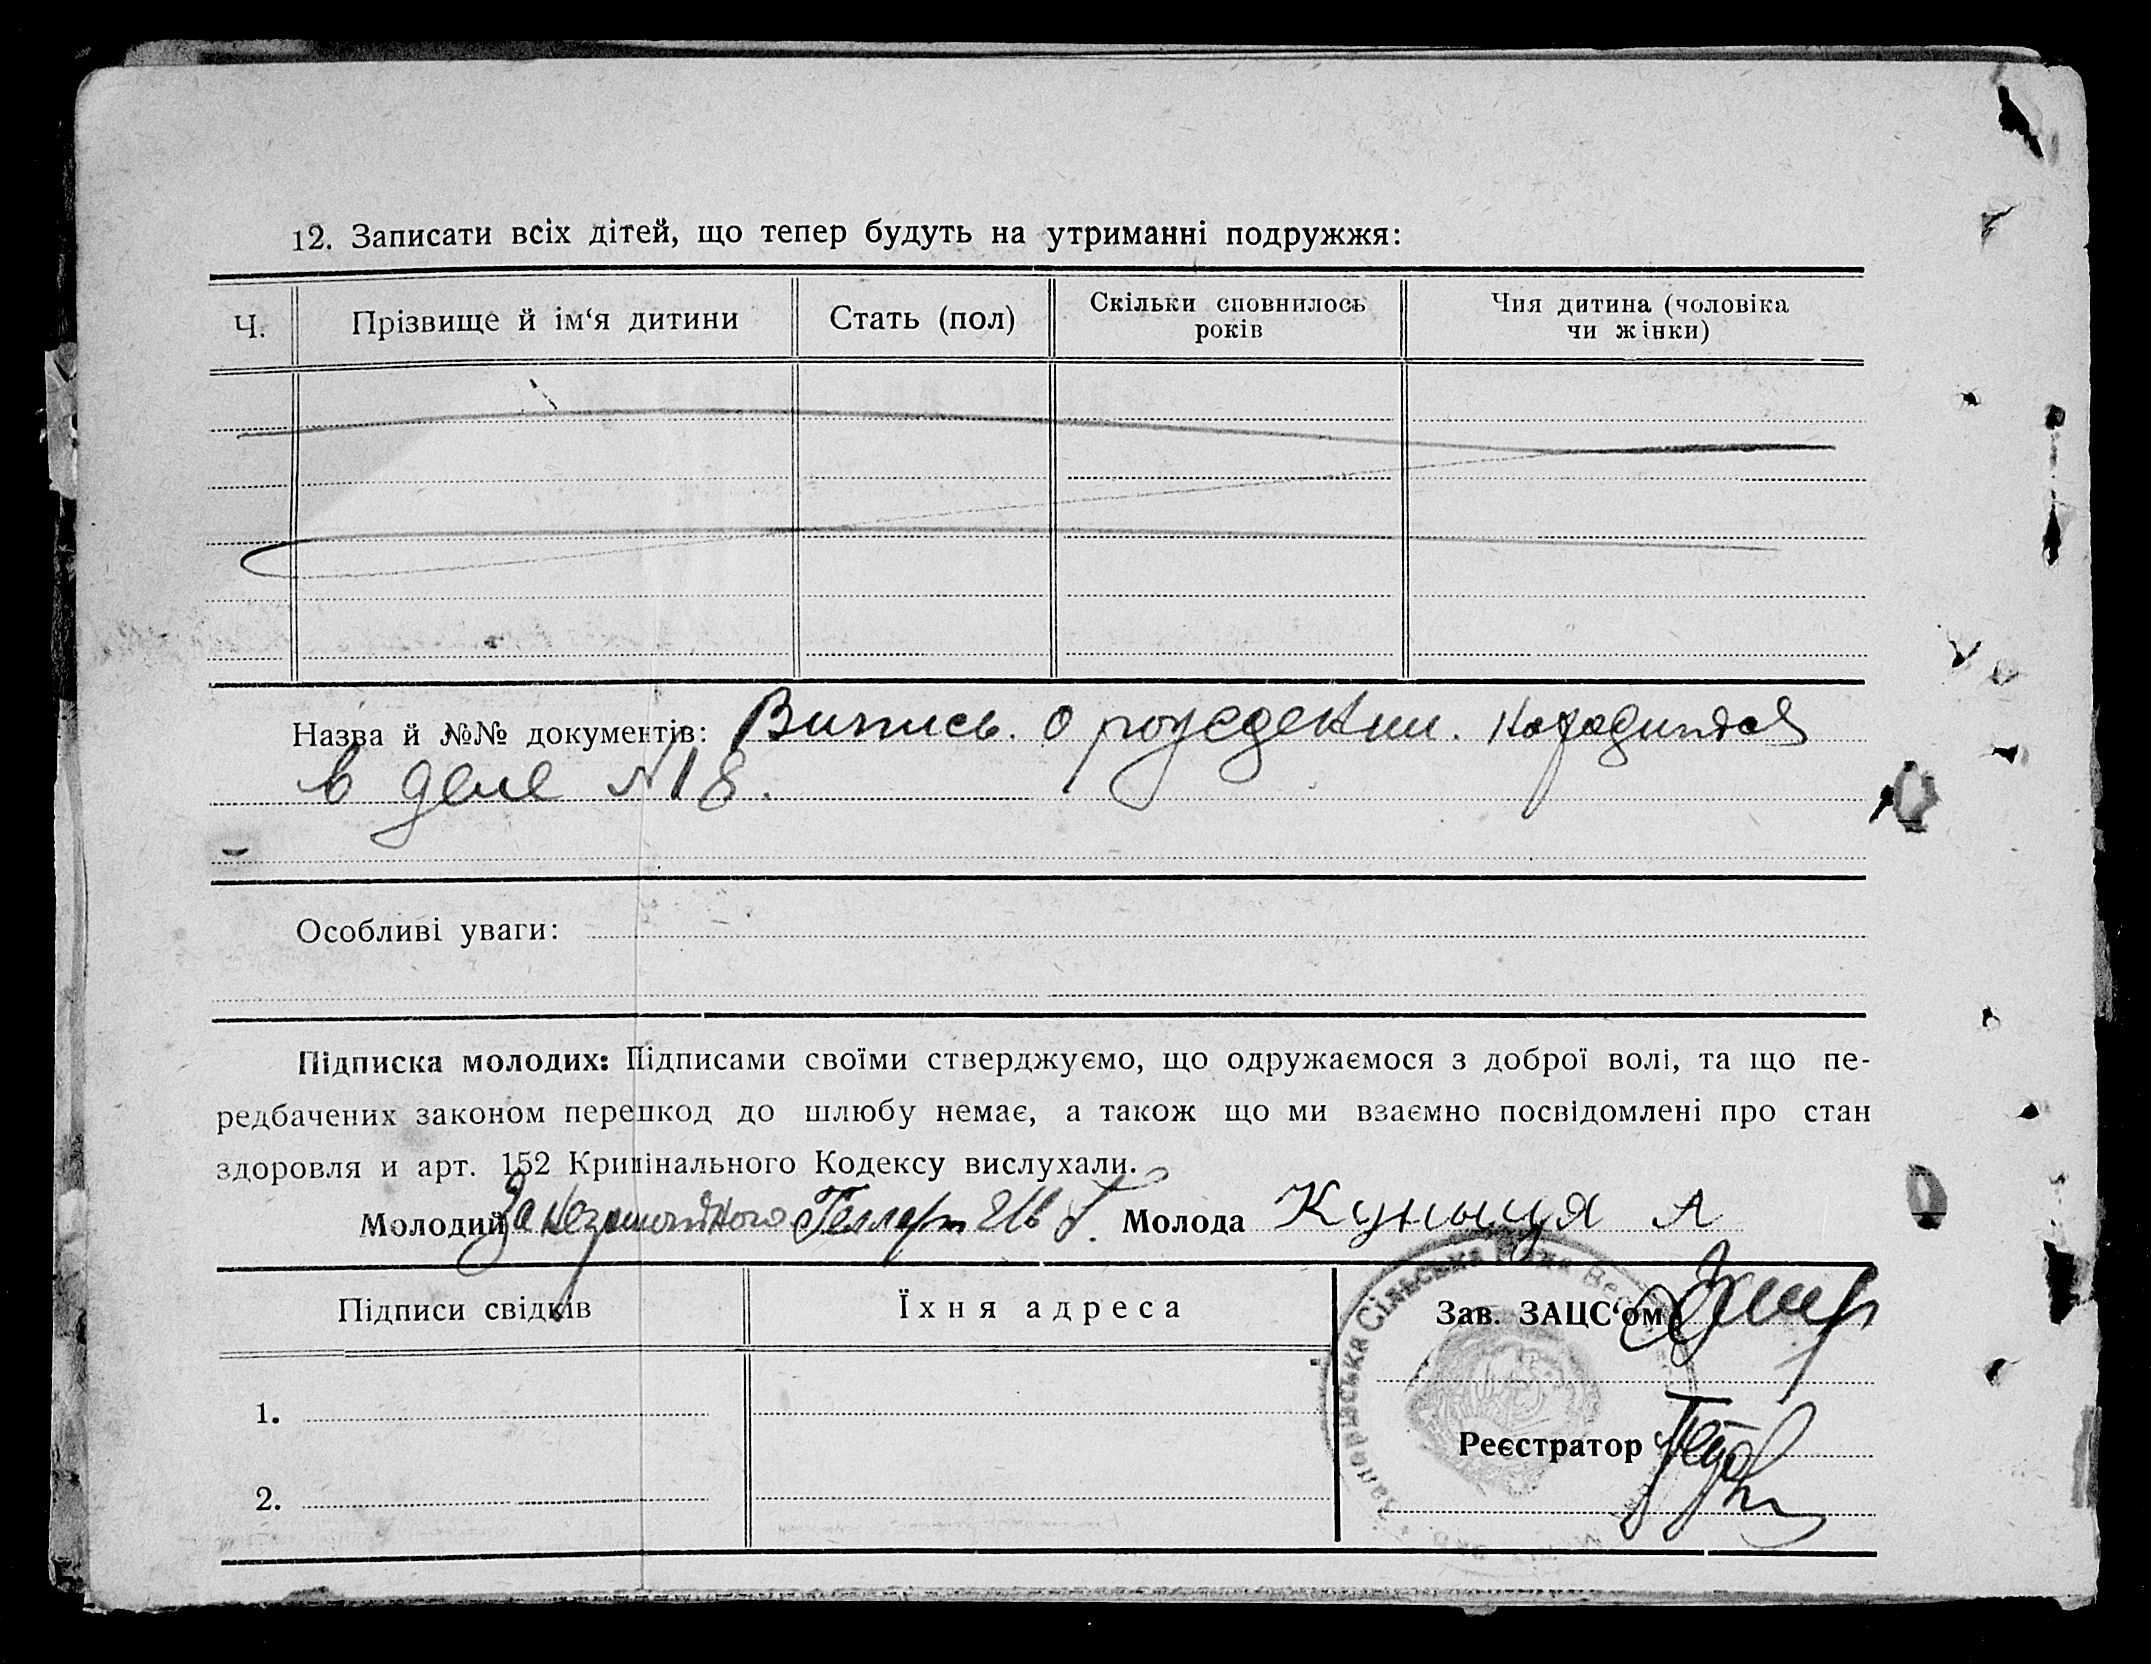 12. Записати всіх дітей, що тепер будуть на утриманні подружжя:
Ч.
Прізвище й ім‘я дитини
Стать (пол)
Скільки сповнилось
років
Чия дитина (чоловіка
чи жінки)
Назва й №№ документів: Випись. о рождении. находится
в деле №18.
Особливі уваги:
Підписка молодих: Підписами своїми стверджуємо, що одружаємося з доброї волі, та що пе-
редбачених законом перепкод до шлюбу немає, а також що ми взаємно посвідомлені про стан
здоровля и арт. 152 Кримінального Кодексу вислухали.
Молодий За неграмотного Геллерт Молода Куныця А
Підписи свідків
Їхня адреса
Зав. ЗАЦС‘ом
1.
Реєстратор
2.
Сільська Рада